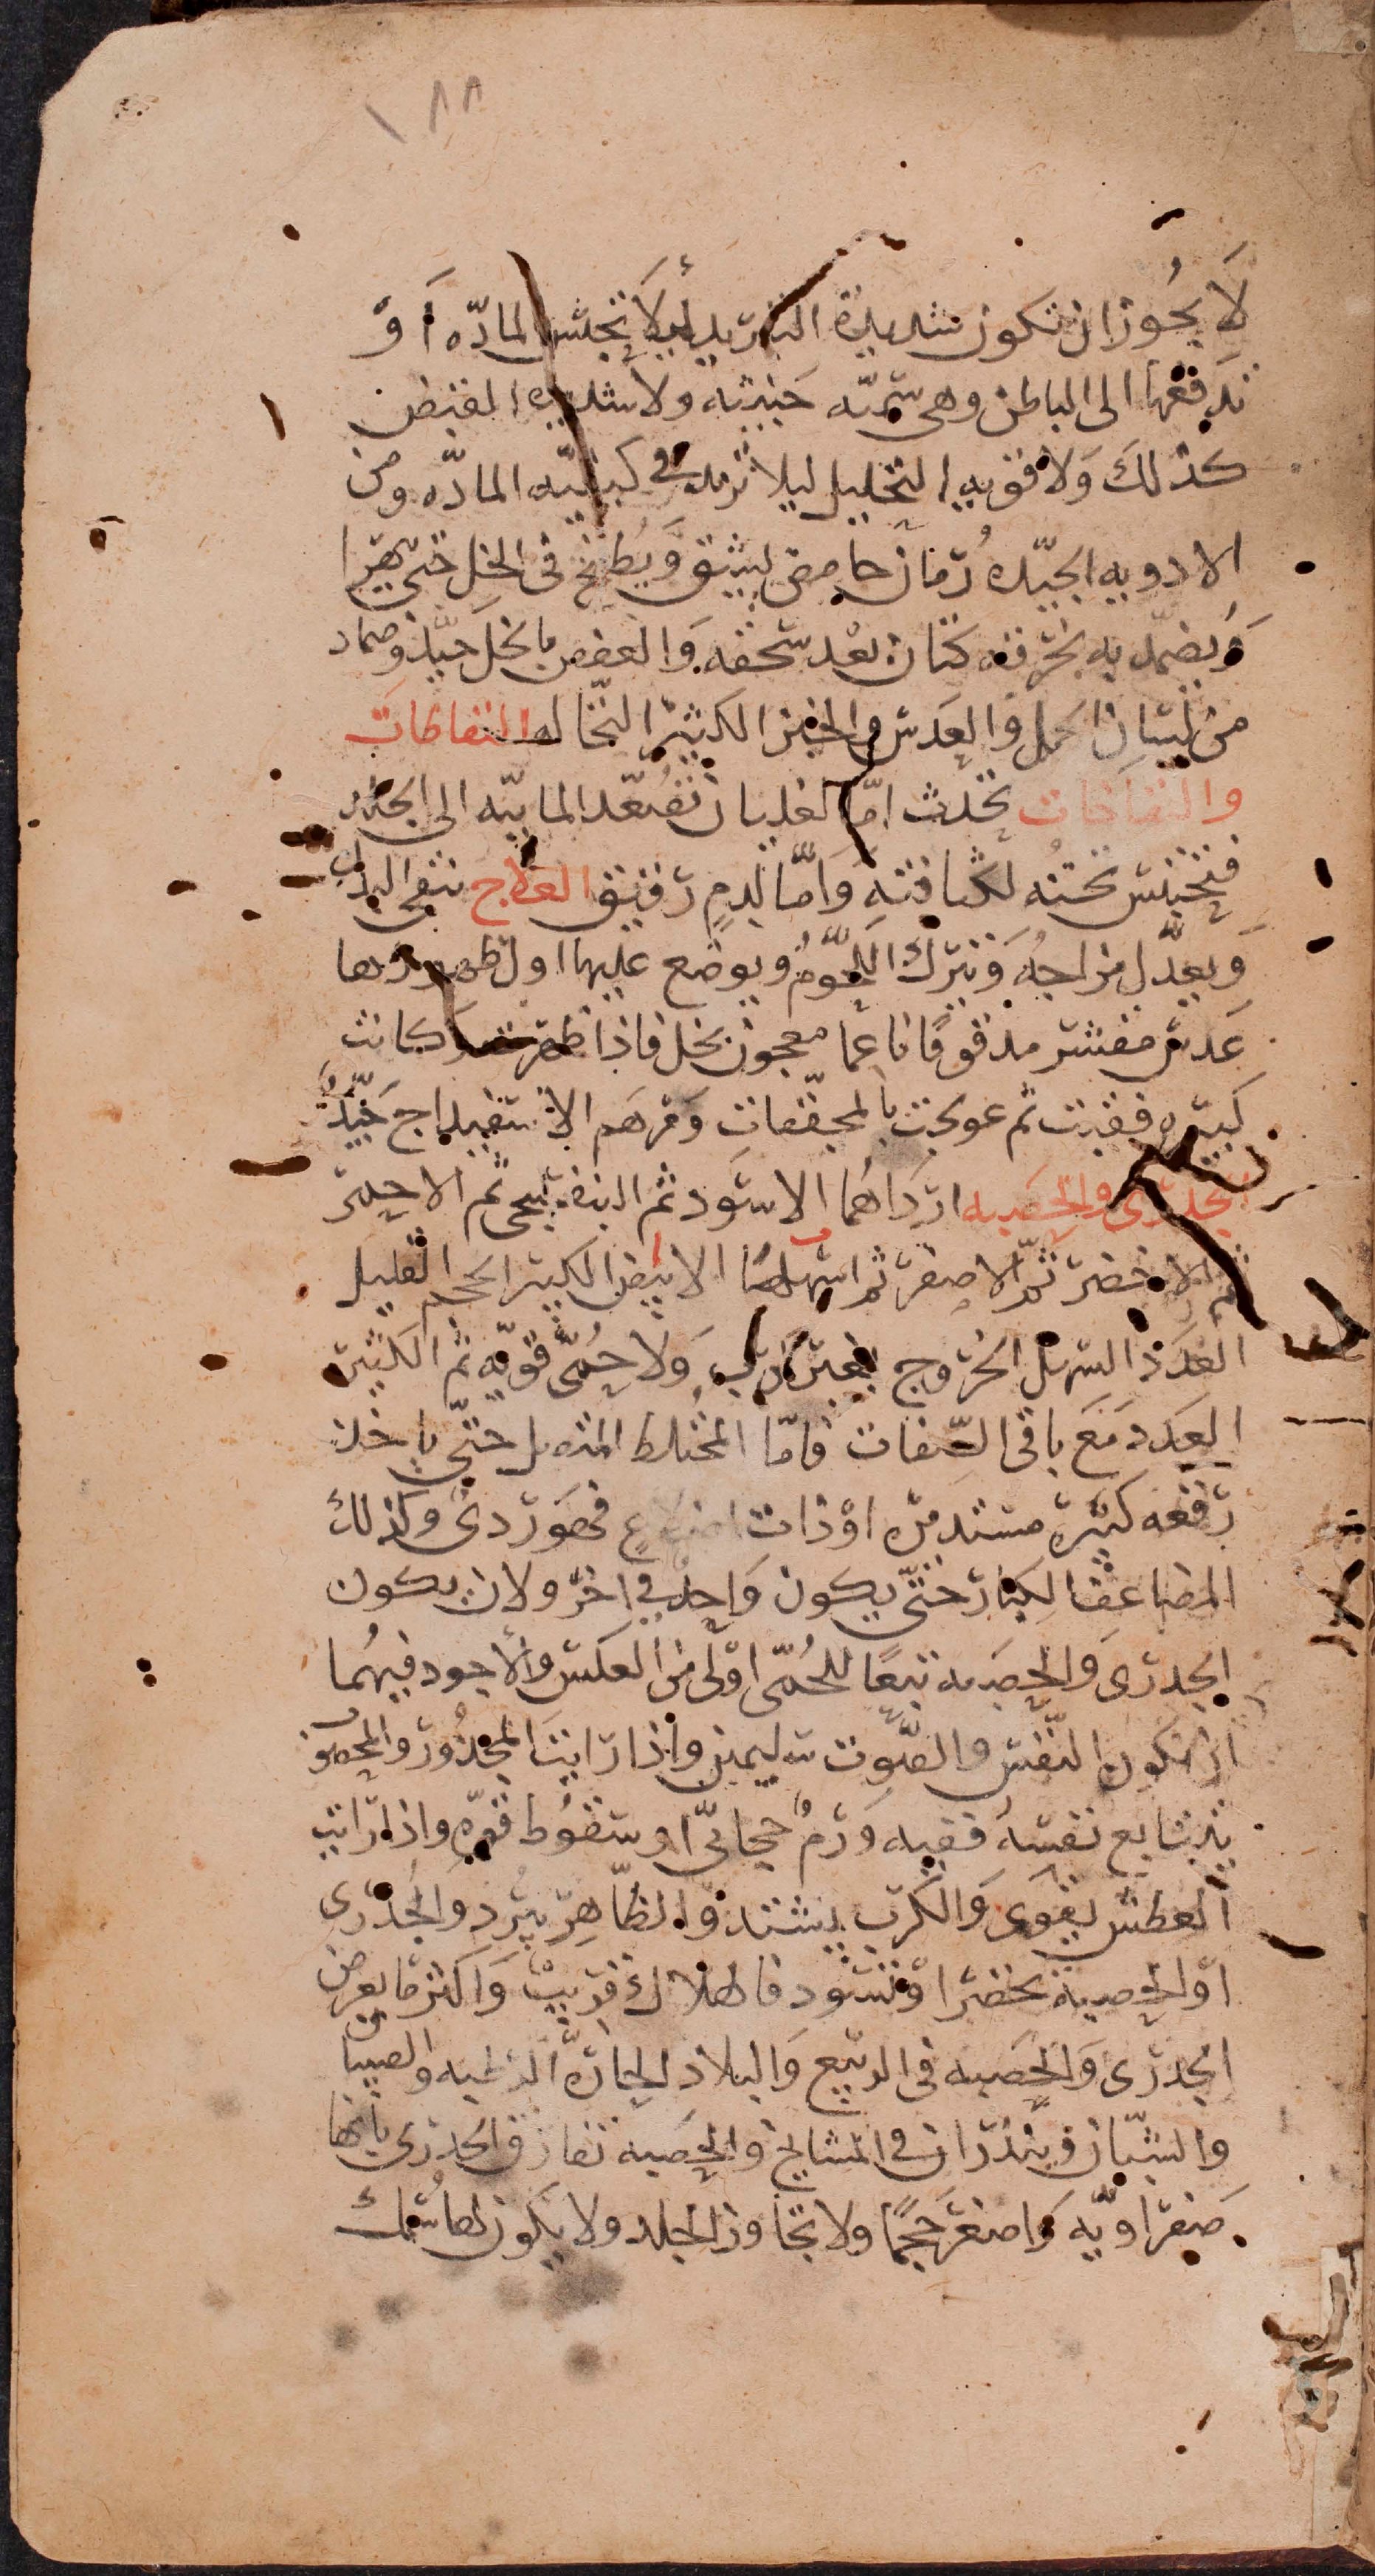 ١٨٨
لا يجوز ان تكون شديدة التبريد ليلا تحبس المادّه أو
تدفعها الى الباطن وهى سمّيّه خبيثه ولا شديده القبض
كذلك ولا قويه التحليل ليلا تزيد فى كيفيّه المادّه ومن
الادويه الجيّده رمّان حامض يشقّ ويطبخ فى الخل حتى يتهرا
ويضمّد به بخرقه كتان بعد سحقه والعفص بالخل جيّد وضماد
من لسان الحمل والعدس والخبز الكثير النخاله النفاطات
والنفاخات تحدث امّا لغليان تصعّد المائيّه الى الجلد
فتحتبس تحته لكثافته وامّا لدمٍ رقيق العلاج ينقى البدن
ويعدّل مزاجه ويترك اللحوم ويوضع عليها اول ظهورها
عدس مقشر مدقوقًا ناعما معجون بخل فاذا ظهرت وكانت
كبيره فقيت ثم عولجت بالمجففات ومرهم الاسفيداج جيّد
الجدرى والحصبه ارداهما الاسود ثم البنفسجى ثم الاحمر
ثم الاخضر ثم الاصفر ثم اسهلهما الابيض الكبير الحجم القليل
العدد السهل الخروج بغير كرب ولا حمّى قويّه ثم الكثير
العدد مع باقى الصّفات فامّا المختلط المتصل حتّى ياخذ
رقعه كبيره مستديره او ذات اضلاعٍ فهو ردئ وكذلك
المضاعف الكبار حتّى يكون واحد فى اخر ولان يكون
الجدرى والحصبه تبعًا للحمّى اولى من العكس والاجود فيهما
ان تكون النّفس والصّوت سليمين واذا رايت المجدور والمحصوب
يتتابع نفسه ففيه ورم حجابىّ او سقوط قوّهٍ واذا رايت
العطش يقوى والكرب يشتد والظّاهر يبرد والجدرى
او الحصبة يخضر او تسّود فالهلاك قريبٌ واكثر ما يعرض
الجدرى والحصبه فى الربيع والبلاد الحارّه الرطبه والصبيان
والشبّان ويندران فى المشايخ والحصبه تفارق الجدرى بانها
صفراويّه واصغر حجمًا ولا تجاوز الجلد ولا يكون لها سمك